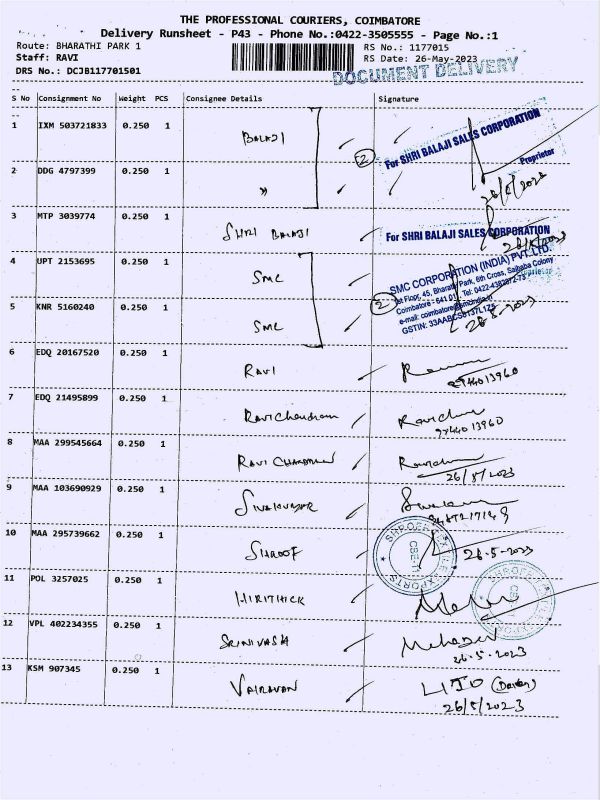 THE PROFESSIONAL COURIERS, COIMBATORE
Delivery Runsheet - P43 - Phone No.:0422-3505555 - Page No.:1
Route: BHARATHI PARK 1 RS No.: 1177015
Staff: RAVI RS Date: 26-May-2023
DRS No.: DCJB117701501
DOCUMENT DELIVERY
S No Consignment No Weight PCS Consignee Details Signature
1 IXM 503721833 0.250 1 BALAJI
2 For SHRI BALAJI SALES CORPORATION
Proprietor
2 DDG 4797399 0.250 1 "
3 MTP 3039774 0.250 1 SHRI BALAJI
For SHRI BALAJI SALES CORPORATION
4 UPT 2153695 0.250 1 SMC
2 SMC CORPORATION (INDIA) PVT. LTD.
1st Floor, 45, Bharathi Park, 6th Cross, Saibaba Colony
Coimbatore - 641
5 KNR 5160240 0.250 1 SMC
26-5-2023
6 EDQ 20167520 0.250 1 RAVI
9944013960
7 EDQ 21495899 0.250 1 Ravichandran
9944013960
8 MAA 299545664 0.250 1 RAVI CHANDRAN
26/5/2023
9 MAA 103690929 0.250 1 SIVAKUMAR
10 MAA 295739662 0.250 1 SHROFF 26-5-2023
11 POL 3257025 0.250 1 HIRITHICK
12 VPL 402234355 0.250 1 SRINIVASA
26-5-2023
13 KSM 907345 0.250 1 VAIRAVAN LIJO
26/5/2023